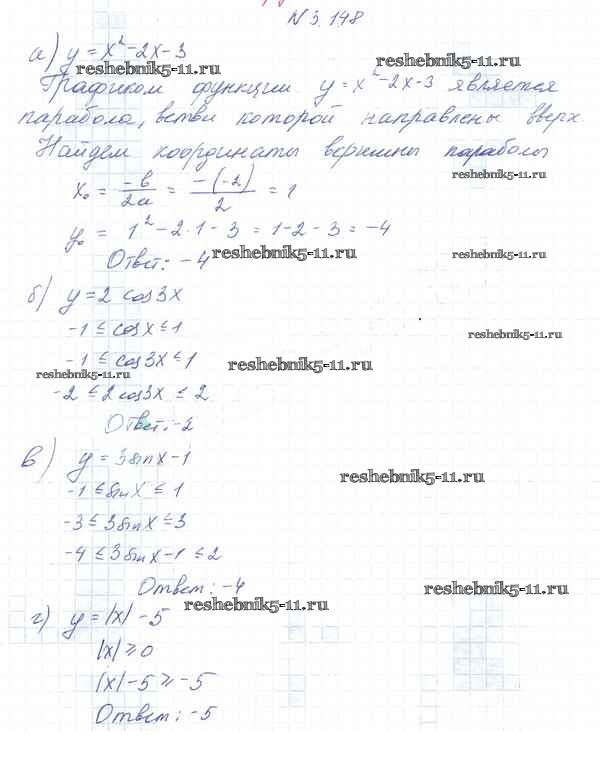 N 5.148
а) y = x² - 2x - 3
reshebnik5-11.ru
Графиком функции y = x² - 2x - 3 является
парабола, ветви которой направлены вверх
Найдем координаты вершины параболы
reshebnik5-11.ru
x₀ = -b/2a = -(-2)/2 = 1
y₀ = 1² - 2·1 - 3 = 1 - 2 - 3 = -4
reshebnik5-11.ru reshebnik5-11.ru
Ответ: -4
б) y = 2 cos3x
-1 ≤ cosx ≤ 1
reshebnik5-11.ru
-1 ≤ cos3x ≤ 1
reshebnik5-11.ru reshebnik5-11.ru
-2 ≤ 2cos3x ≤ 2
Ответ: -2
в) y = 3sinx - 1
reshebnik5-11.ru
-1 ≤ sinx ≤ 1
-3 ≤ 3sinx ≤ 3
-4 ≤ 3sinx - 1 ≤ 2
Ответ: -4
reshebnik5-11.ru
reshebnik5-11.ru
г) y = |x| - 5
|x| ≥ 0
|x| - 5 ≥ -5
Ответ: -5